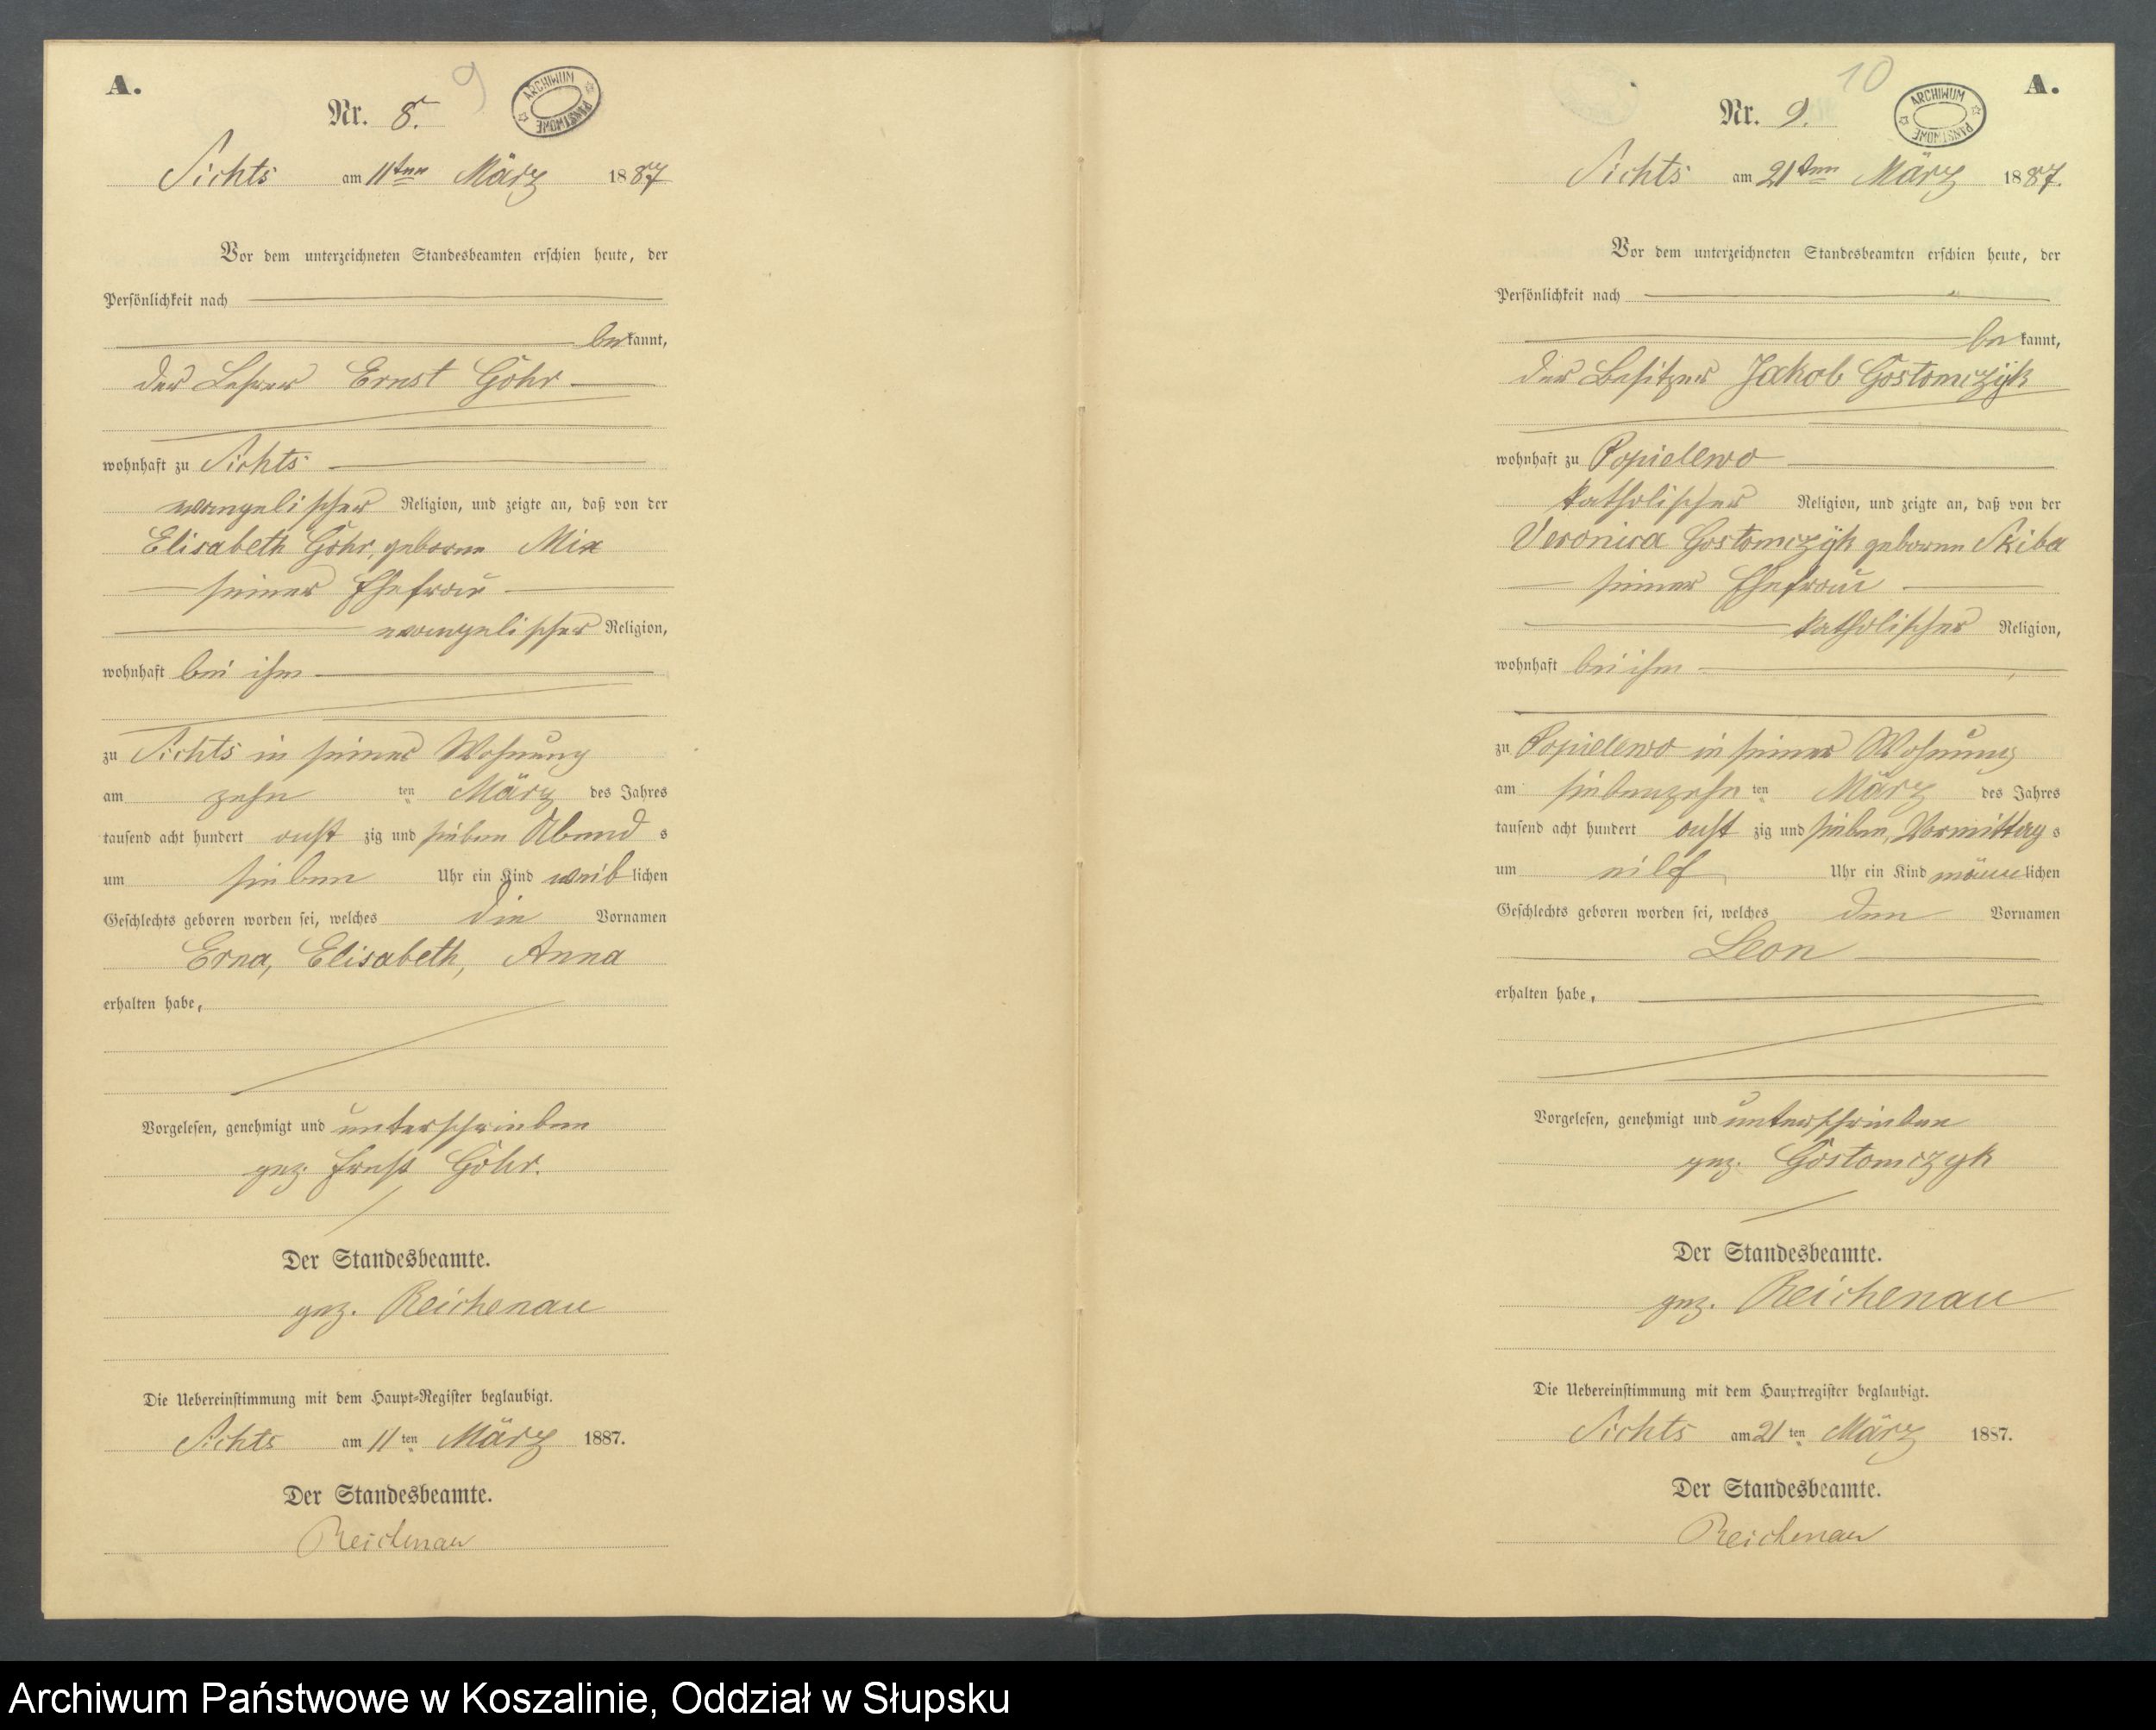 A.
9
Nr. 8.
ARCHIWUM PAŃSTWOWE
Sichts am 11ten März 1887
Vor dem unterzeichneten Standesbeamten erschien heute, der
Persönlichkeit nach
bekannt,
der Lehrer Ernst Göhr
wohnhaft zu Sichts
evangelischer Religion, und zeigte an, daß von der
Elisabeth Göhr, geborne Mix
seiner Ehefrau
evangelischer Religion,
wohnhaft bei ihm
zu Sichts in seiner Wohnung
am zehn ten März des Jahres
tausend acht hundert acht zig und sieben Abend s
um sieben Uhr ein Kind weiblichen
Geschlechts geboren worden sei, welches die Vornamen
Erna, Elisabeth, Anna
erhalten habe,
Vorgelesen, genehmigt und unterschrieben
gez. Ernst Göhr.
Der Standesbeamte.
gez. Reichenau
Die Uebereinstimmung mit dem Haupt=Register beglaubigt.
Sichts am 11 ten März 1887.
Der Standesbeamte.
Reichenau
10
A.
Nr. 9.
ARCHIWUM PAŃSTWOWE
Sichts am 21ten März 1887.
Vor dem unterzeichneten Standesbeamten erschien heute, der
Persönlichkeit nach
bekannt,
der Besitzer Jakob Gostomczÿk
wohnhaft zu Popielewo
katholischer Religion, und zeigte an, daß von der
Veronica Gostomczÿk geborne Skiba
seiner Ehefrau
katholischer Religion,
wohnhaft bei ihm
zu Popielewo in seiner Wohnung
am siebenzehn ten März des Jahres
tausend acht hundert acht zig und sieben, Vormittag s
um eilf Uhr ein Kind männlichen
Geschlechts geboren worden sei, welches den Vornamen
Leon
erhalten habe,
Vorgelesen, genehmigt und unterschrieben
gez. Gostomczyk
Der Standesbeamte.
gez. Reichenau
Die Uebereinstimmung mit dem Hauptregister beglaubigt.
Sichts am 21 ten März 1887.
Der Standesbeamte.
Reichenau
Archiwum Państwowe w Koszalinie, Oddział w Słupsku